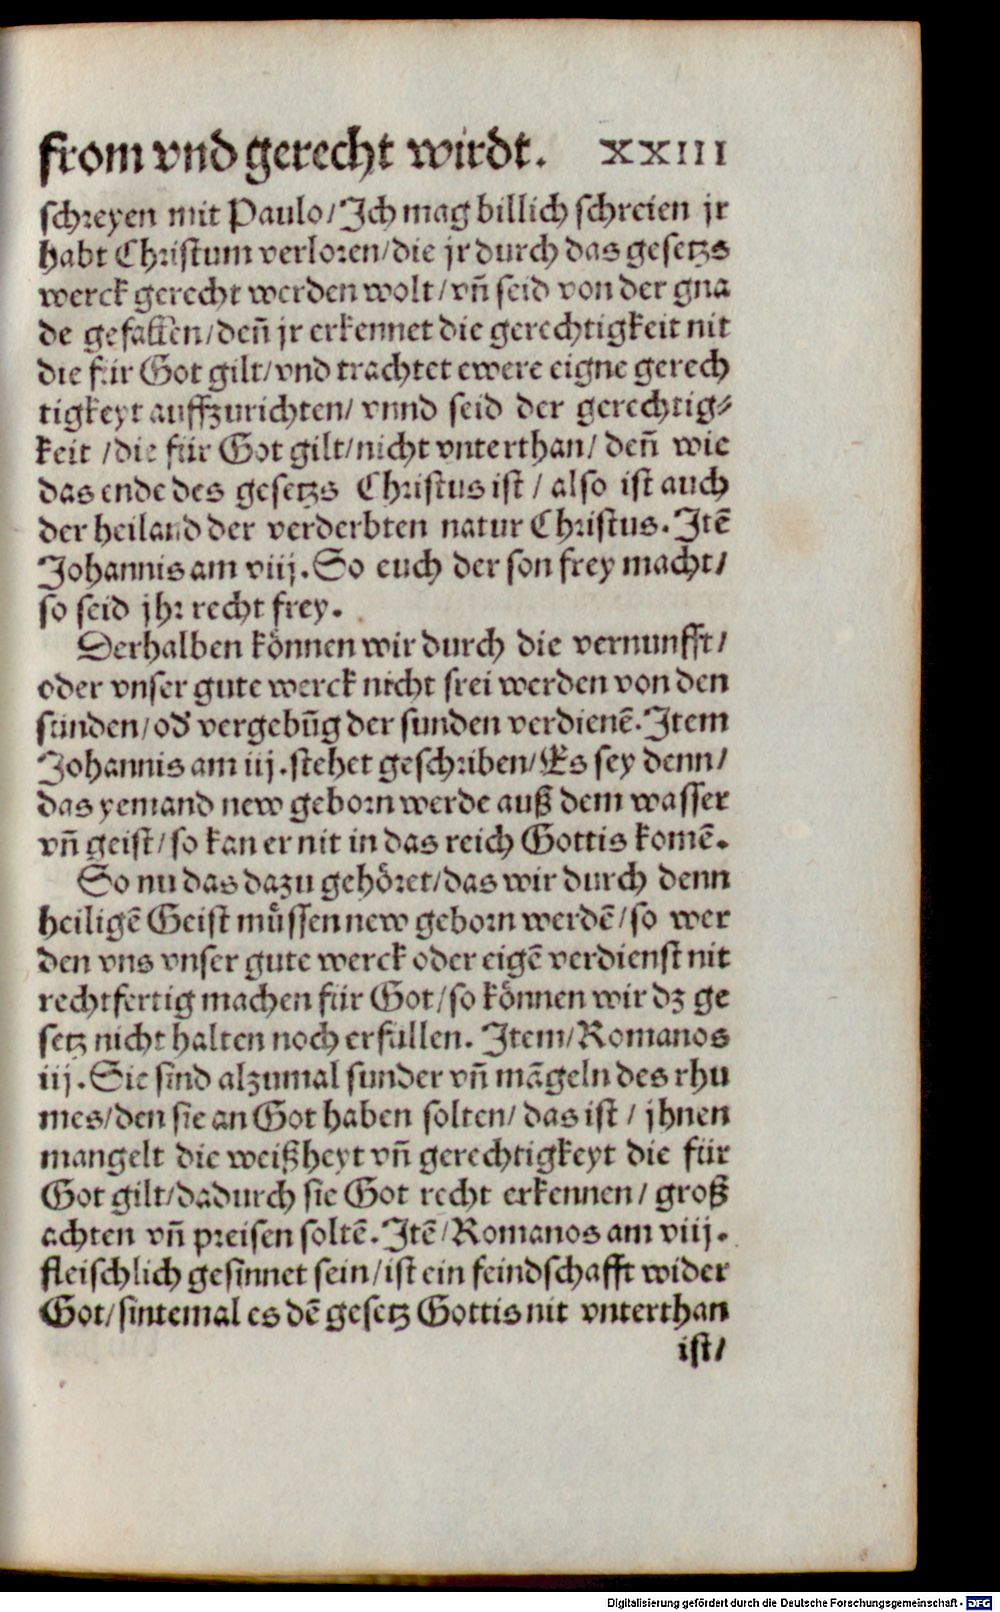 from vnd gerecht wirdt. XXIII
schreyen mit Paulo/Ich mag billich schreien jr
habt Christum verloren/die jr durch das gesetzs
werck gerecht werden wolt/vñ seid von der gna
de gefallen/deñ jr erkennet die gerechtigkeit nit
die für Got gilt/vnd trachtet ewere eigne gerech
tigkeyt auffzurichten/ vnnd seid der gerechtig⸗
keit /die für Got gilt/nicht vnterthan/ deñ wie
das ende des gesetzs Christus ist / also ist auch
der heiland der verderbten natur Christus. Itē
Johannis am viij. So euch der son frey macht/
so seid jhr recht frey.
Derhalben können wir durch die vernunfft/
oder vnser gute werck nicht frei werden von den
sunden/od' vergebūg der sunden verdienē. Item
Johannis am iij. stehet geschriben/Es sey denn/
das yemand new geborn werde auß dem wasser
vñ geist/so kan er nit in das reich Gottis komē.
So nu das dazu gehöret/das wir durch denn
heiligē Geist müssen new geborn werdē/so wer
den vns vnser gute werck oder eigē verdienst nit
rechtfertig machen für Got/so können wir dz ge
setz nicht halten noch erfullen. Item/Romanos
iij. Sie sind alzumal sunder vñ māgeln des rhu
mes/den sie an Got haben solten/ das ist / jhnen
mangelt die weißheyt vñ gerechtigkeyt die für
Got gilt/dadurch sie Got recht erkennen/ groß
achten vñ preisen soltē. Itē/Romanos am viij.
fleischlich gesinnet sein/ist ein feindschafft wider
Got/sintemal es dē gesetz Gottis nit vnterthan
ist/
Digitalisierung gefördert durch die Deutsche Forschungsgemeinschaft - DFG